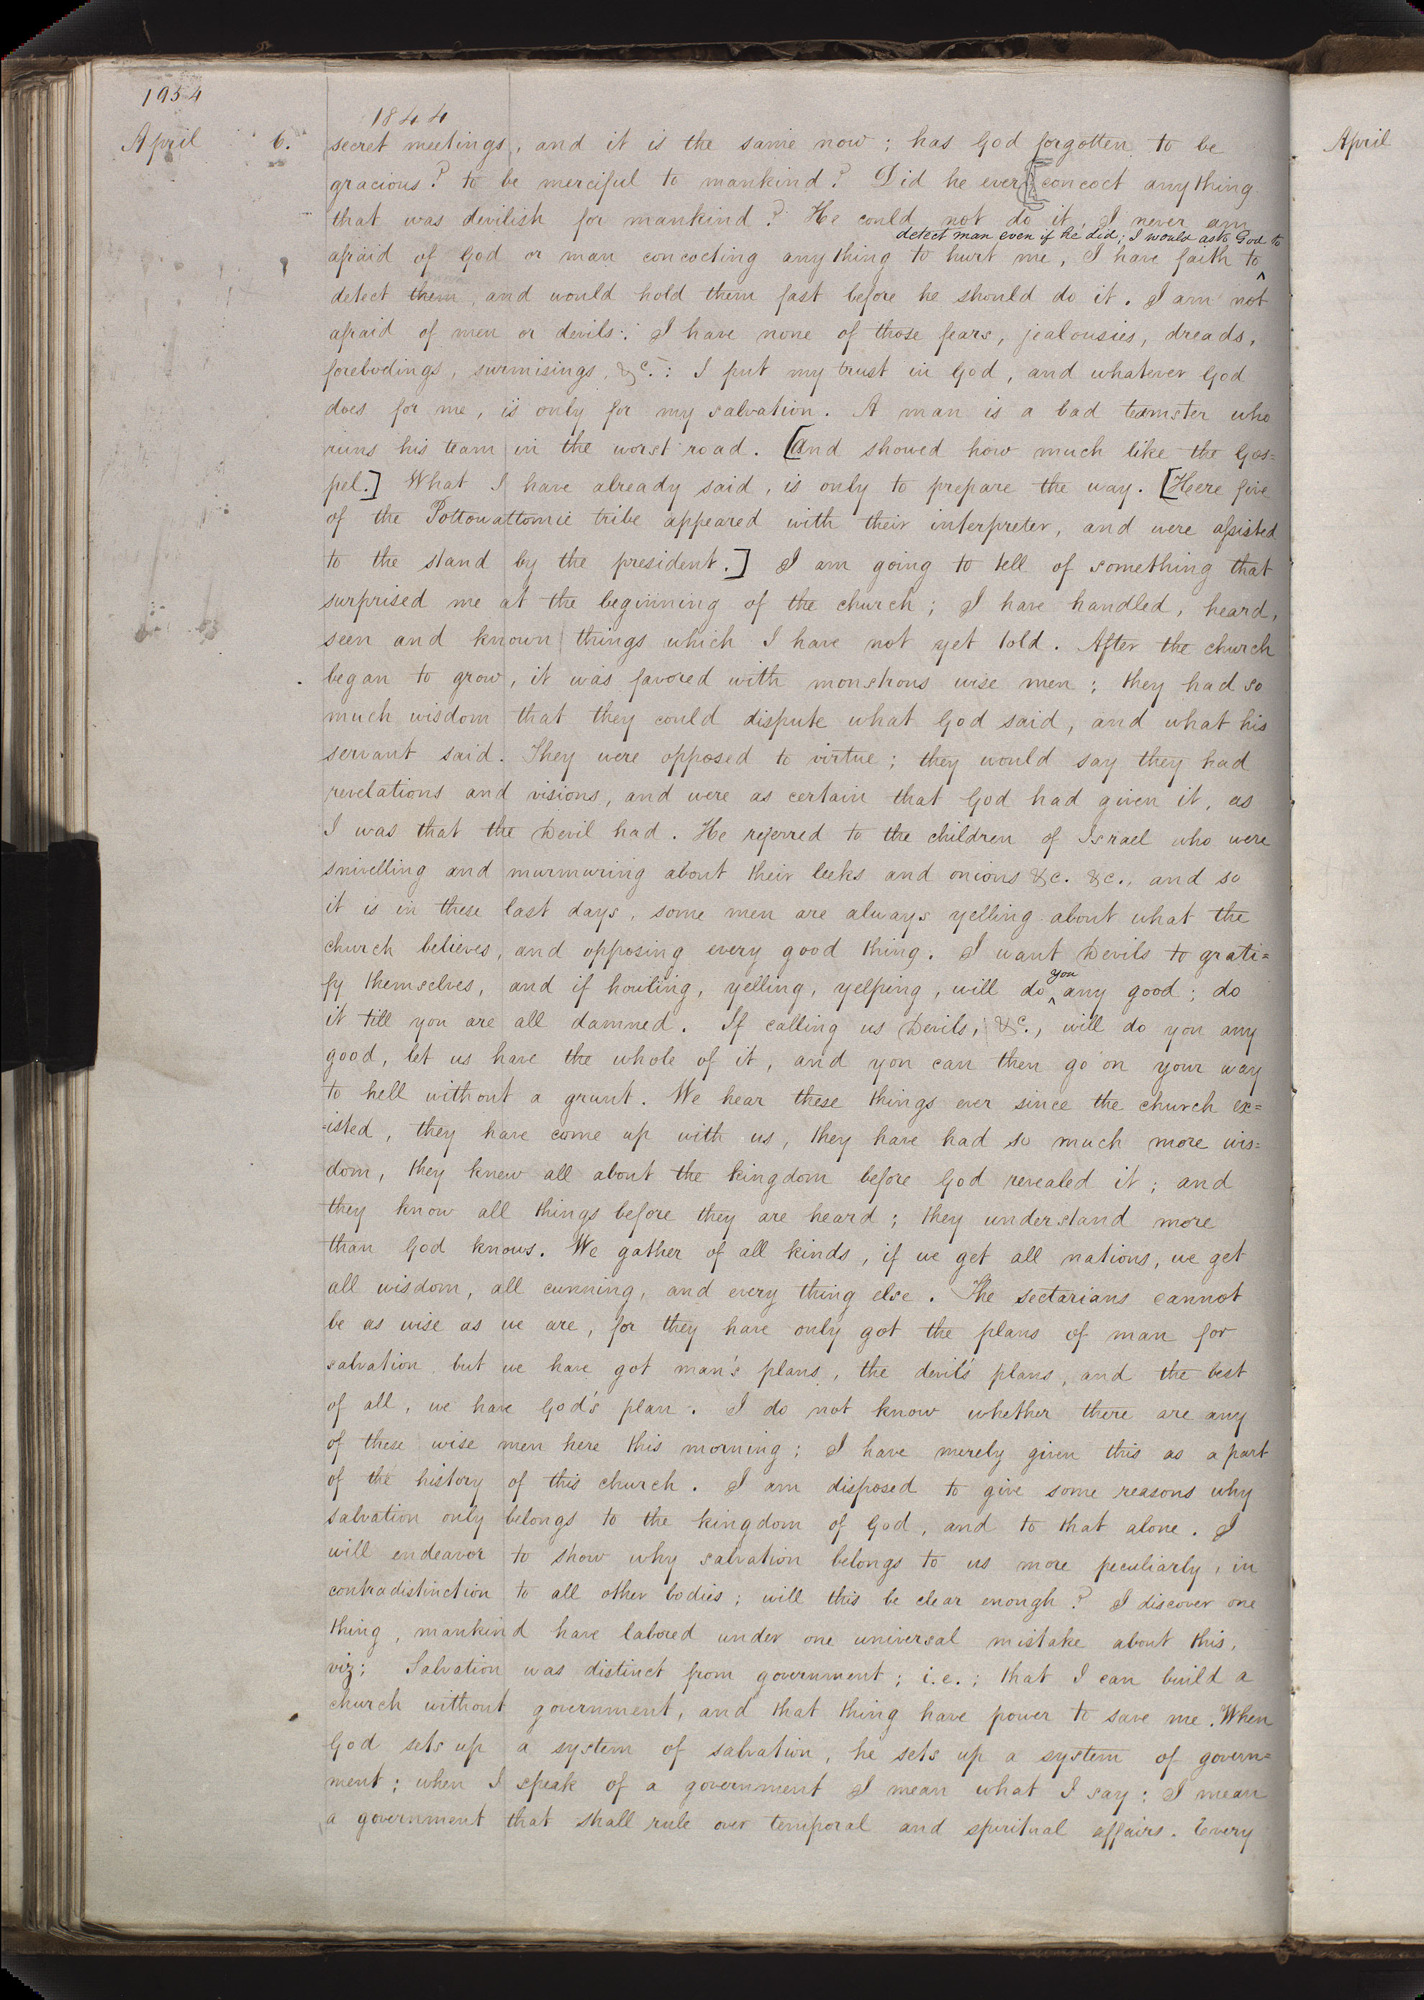 1954
1844
April 6. secret meetings, and it is the same now; has God forgotten to be
gracious? to be merciful to mankind? Did he ever concoct anything
that was devilish for mankind? He could not do it, I never am
detect man even if he did; I would ask God to
afraid of God or man concocting any thing to hurt me, I have faith to ^
detect them, and would hold them fast before he should do it. I am not
afraid of men or devils: I have none of those fears, jealousies, dreads,
forebodings, surmisings, &c.: I put my trust in God, and whatever God
does for me, is only for my salvation. A man is a bad teamster who
runs his team in the worst road. [and showed how much like the Gos=
pel.] What I have already said, is only to prepare the way. [Here five
of the Pottowattomie tribe appeared with their interpreter, and were assisted
to the stand by the president.] I am going to tell of something that
surprised me at the beginning of the church; I have handled, heard,
seen and known things which I have not yet told. After the church
began to grow, it was favored with monstrous wise men; they had so
much wisdom that they could dispute what God said, and what his
servant said. They were opposed to virtue; they would say they had
revelations and visions, and were as certain that God had given it, as
I was that the Devil had. He referred to the children of Israel who were
snivelling and murmuring about their leeks and onions &c. &c., and so
it is in these last days, some men are always yelling about what the
church believes, and opposing every good thing. I want Devils to grati=
you
fy themselves, and if howling, yelling, yelping, will do ^ any good; do
it till you are all damned. If calling us Devils, &c., will do you any
good, let us have the whole of it, and you can then go on your way
to hell without a grunt. We hear these things ever since the church ex=
=isted, they have come up with us, they have had so much more wis=
dom, they knew all about the kingdom before God revealed it; and
they know all things before they are heard; they understand more
than God knows. We gather of all kinds, if we get all nations, we get
all wisdom, all cunning, and every thing else. The sectarians cannot
be as wise as we are, for they have only got the plans of man for
salvation but we have got man's plans, the devil's plans, and the best
of all, we have God's plan. I do not know whether there are any
of these wise men here this morning; I have merely given this as a part
of the history of this church. I am disposed to give some reasons why
salvation only belongs to the kingdom of God, and to that alone. I
will endeavor to show why salvation belongs to us more peculiarly, in
contradistinction to all other bodies; will this be clear enough? I discover one
thing, mankind have labored under one universal mistake about this,
viz; Salvation was distinct from government; i.e.; that I can build a
church without government, and that thing have power to save me. When
God sets up a system of salvation, he sets up a system of govern=
ment; when I speak of a government I mean what I say; I mean
a government that shall rule over temporal and spiritual affairs. Every
April